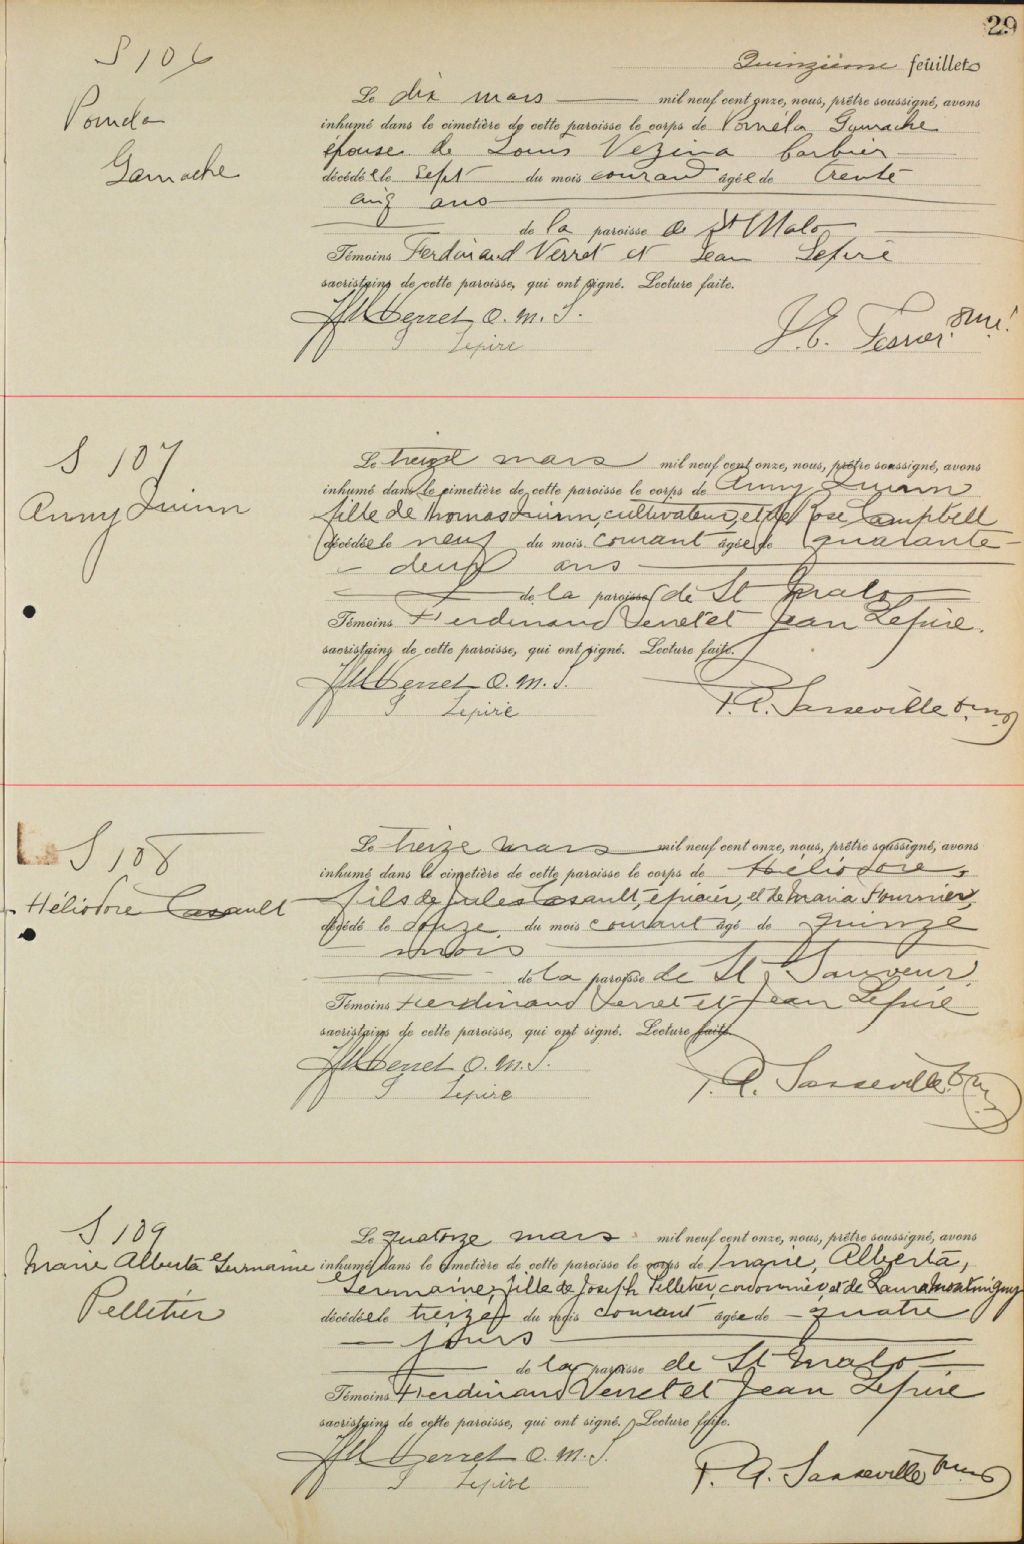 29
Quinzième feuillet
S 106
Pomela
Gamache
Le dix mars mil neuf cent onze, nous, prêtre soussigné, avons
inhumé dans le cimetière de cette paroisse le corps de Poméla Gamache
épouse de Louis Vezina barbier
décédée le sept du mois courant âgée de trente
cinq ans
de la paroisse de St Malo
Témoins Ferdinand Verret et Jean Lepire
sacristains de cette paroisse, qui ont signé. Lecture faite.
Verret O. M. S.
J Lepire
J. E.
S 107
Anny Quinn
Le treize mars mil neuf cent onze, nous, prêtre soussigné, avons
inhumé dans le cimetière de cette paroisse le corps de Anny Quinn
fille de Thomas Quinn, cultivateur, et de Rose Campbell
décédée le neuf du mois courant âgée de quarante-
deux ans
de la paroisse de St Malo
Témoins Ferdinand Verret et Jean Lepire.
sacristains de cette paroisse, qui ont signé. Lecture faite.
Verret O. M. S.
J Lepire
P. A. Sasseville
S 108
Héliodore Casault
Le treize mars mil neuf cent onze, nous, prêtre soussigné, avons
inhumé dans le cimetière de cette paroisse le corps de Héliodore,
fils de Jules Casault, épicier, et de Maria Fournier,
décédé le onze du mois courant âgé de quinze
mois
de la paroisse de St Sauveur.
Témoins Ferdinand Verret et Jean Lepire
sacristains de cette paroisse, qui ont signé. Lecture faite.
Verret O. M. S.
J Lepire
P. A. Sasseville
S 109
Marie Alberta Germaine
Pelletier
Le quatorze mars mil neuf cent onze, nous, prêtre soussigné, avons
inhumé dans le cimetière de cette paroisse le corps de Marie, Alberta,
Germaine, fille de Joseph Pelletier, cordonnier et de Laura Montmigny
décédée le treize du mois courant âgée de quatre
jours
de la paroisse de St Malo
Témoins Ferdinand Verret et Jean Lepire
sacristains de cette paroisse, qui ont signé. Lecture faite.
Verret O. M. S.
J Lepire
P. A. Sasseville